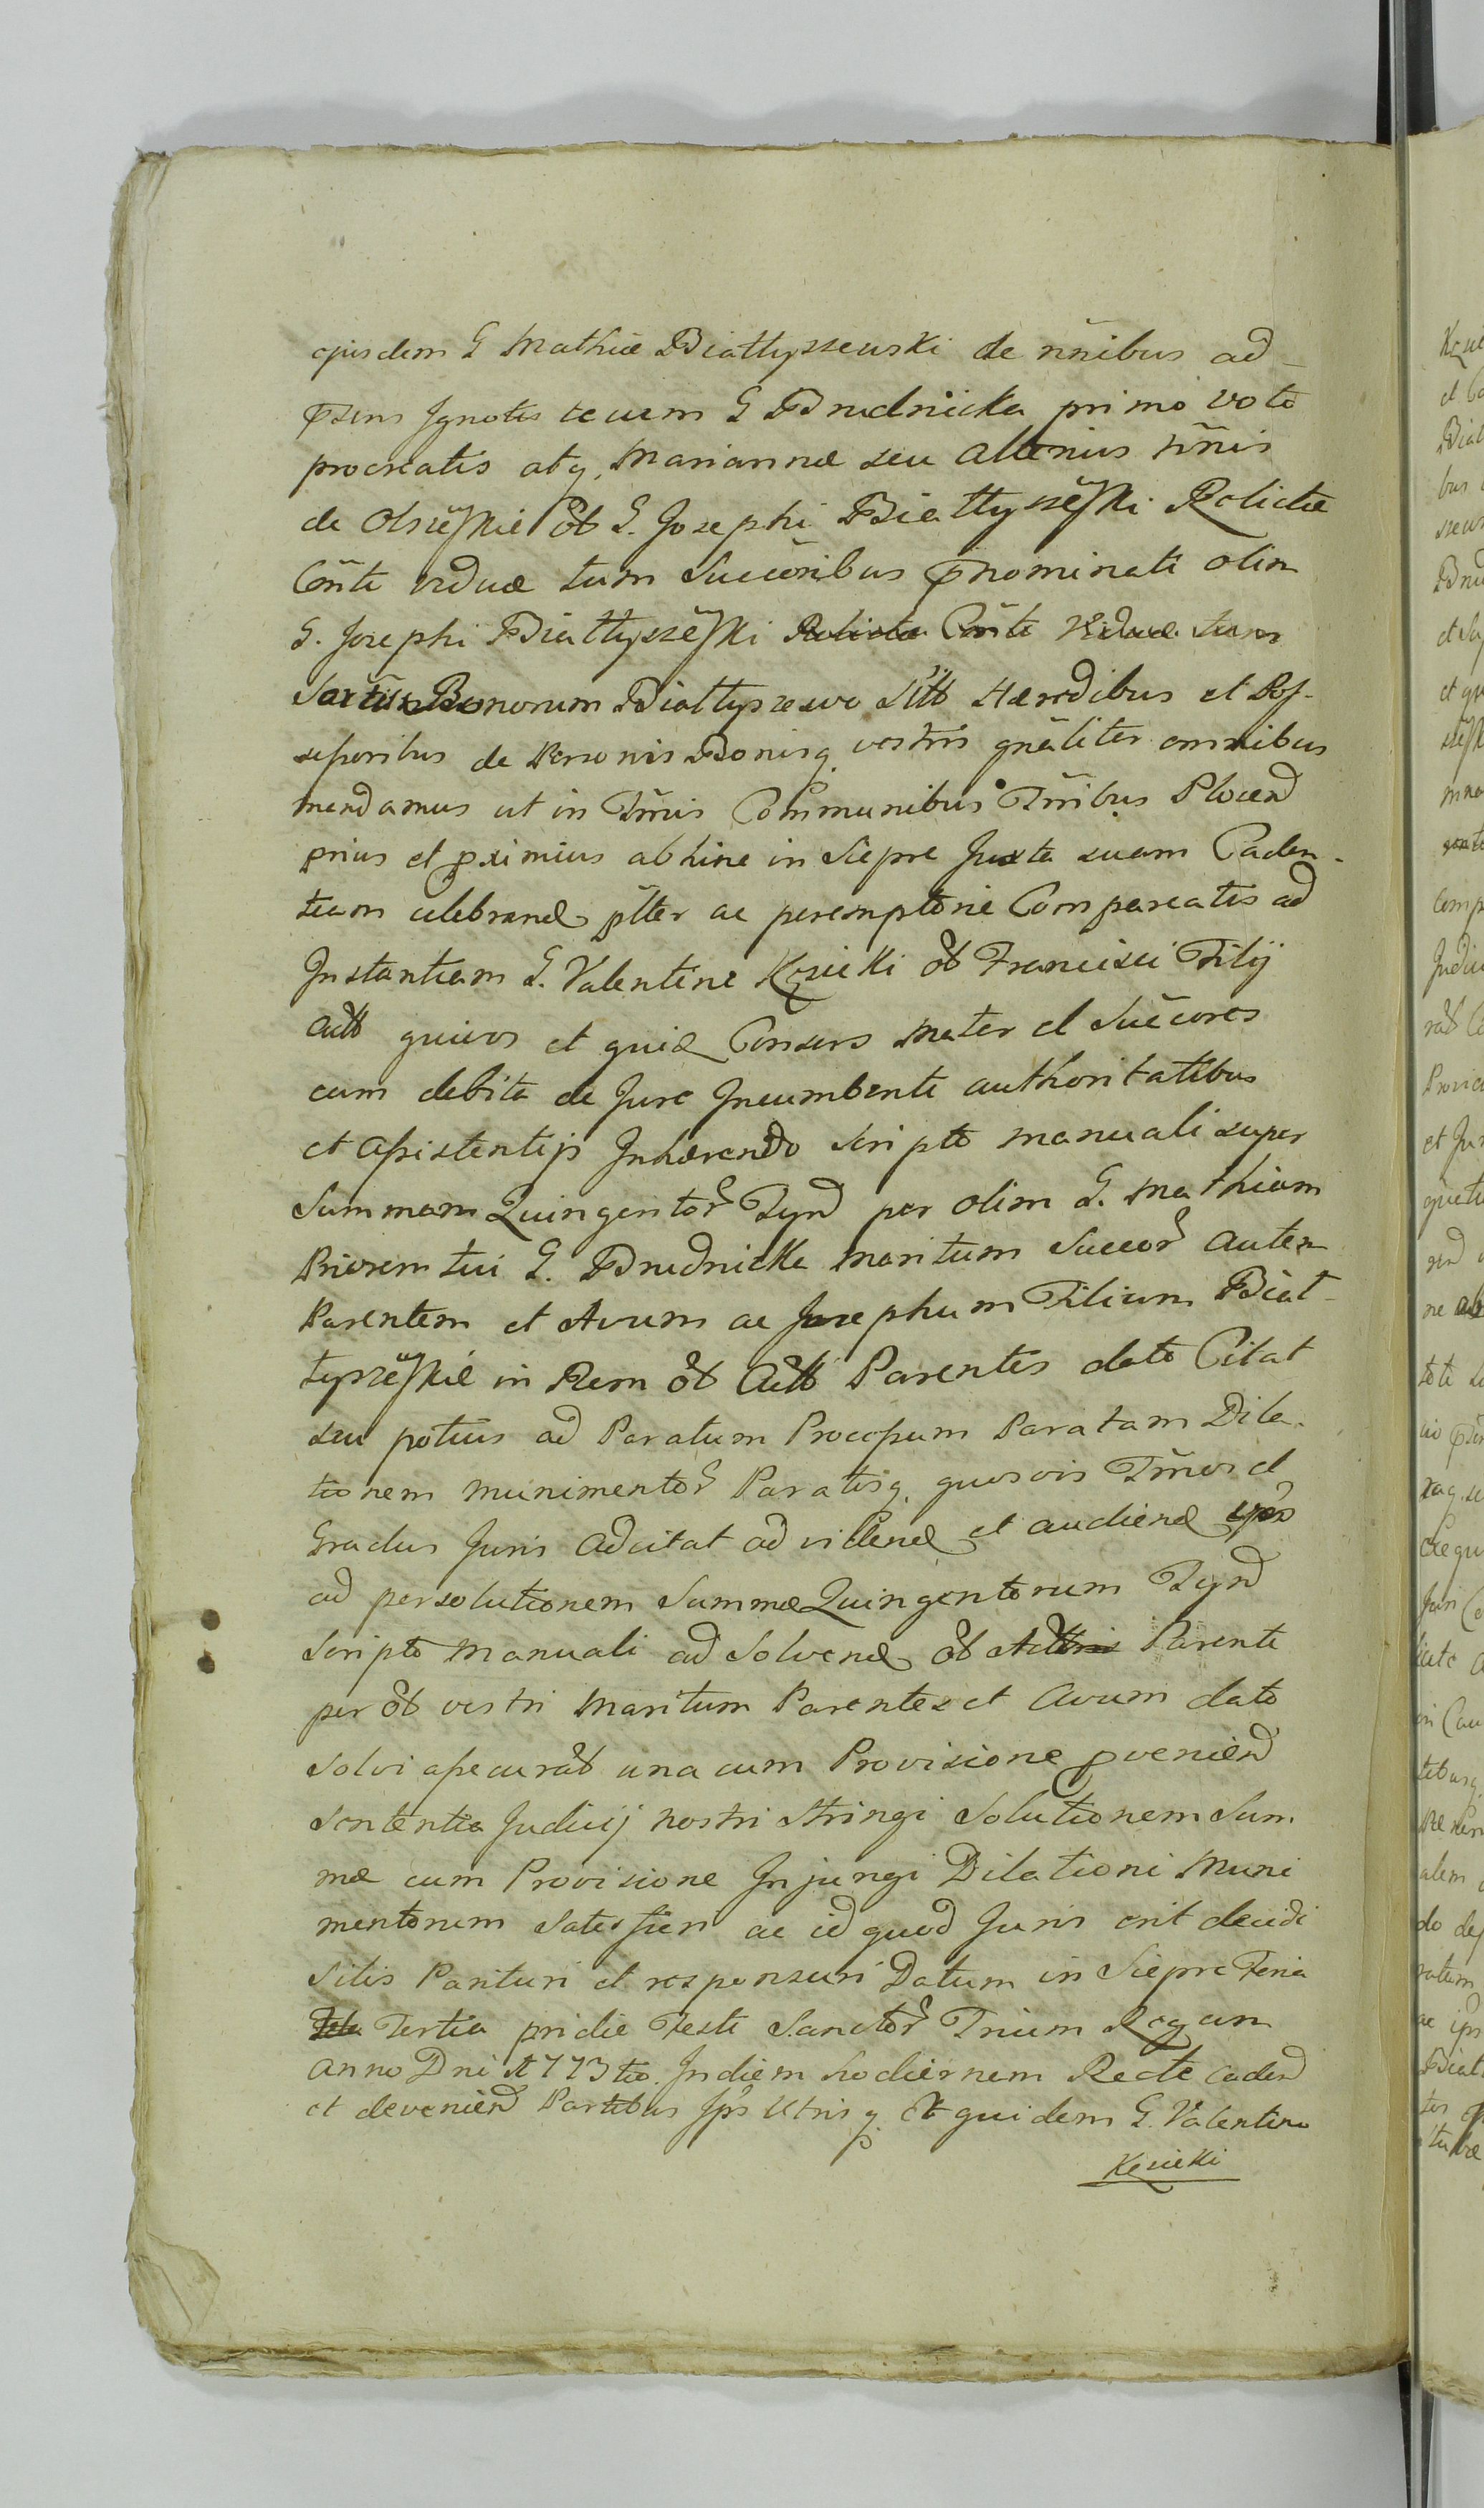 ejusdem G Mathiæ Biattyszewski de nñibus ad-
p̃sens Ignotis tecum G Brudnicka primo voto
procreatis atq, Mariannæ seu alterius nñis
de Olszẽskie Oḃ G. Josephi Biattyszẽski Relictæ
Cõnti viduæ tum Succoribus p̃nominati olim
G. Josephi Biattyszẽski Relictæ Cõnti Viduæ tum
Bonorum Biattyszewo Hæredibus et Pos-
sessoribus de Personis Bonisq vestris gnãliter omnibus
mandamus ut in Trmis Communibus Trribus Plocen
prius et pximius abhinc in Siepre Juxta suam Caden-
tiam celebrand ptter ac peremptorie Compareatis ad
Instantiam G. Valentini Kęsicki oḃ Francisci Filij
Actt quivos et quid Consors Mater et Succores
cum debita de Jure Incumbenti authoritatibus
et assistentijs Inhærendo Scripto manuali super
Summam Quingentor Tynf per olim G. Mathiam
Priorem tui G. Brudnicka Maritum Succor autem
Parentem et Avum ac Josephum Filium Biat-
tyszẽskie in Rem oḃ Actt Parentis dato Citat
seu potius ad Paratum Processum Paratam Dila-
tionem Munimentor Paratisq, quosvis Trmos et
Gradus Juris Adcitat ad videnḋ et audienḋ vos
ad persolutionem Summæ Quingentorum Tynf
Scripto Manuali ad Solvenḋ oḃ Parenti
per oḃ vestri Maritum Parentes et Avum dato
Solvi assecurat una cum Provisione pveniend
Sententia Judicij nostri Stringi Solutionem Sum
mæ cum Provisione Injungi Dilationi Muni
mentorum Satisfieri ac id quod Juris erit decidi
Sitis Parituri et responsuri Datum in Siepre Feria
Tertia pridie Festi Sanctor Trium Regum
Anno Dni 1773tio. In diem hodiernem Recte cadend
et deveniend Partibus Ips Utrisq Et quidem G. Valentino
Kęsicki